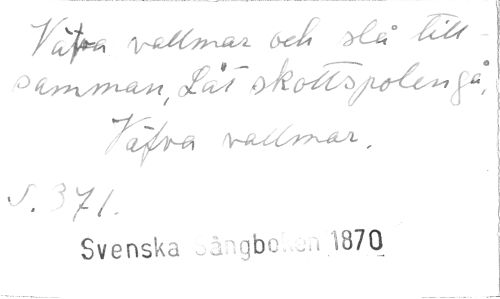 Väfva vallmar och slå till-
samman, Låt skottspolen gå,
Väfva vallmar.
S. 371.
Svenska Sångboken 1870